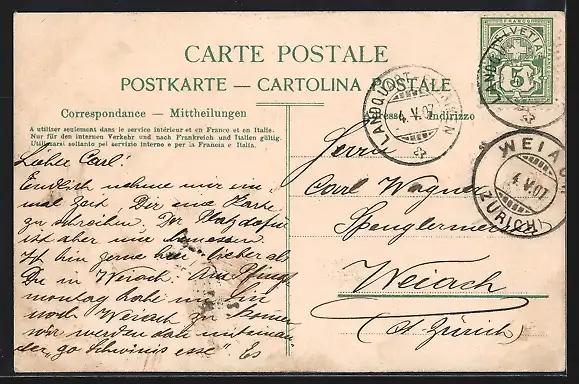 CARTE POSTALE
POSTKARTE — CARTOLINA POSTALE
Correspondance — Mittheilungen
Adresse Indirizzo
A utiliser seulement dans le service intérieur et en France et en Italie.
Nur für den internen Verkehr und nach Frankreich und Italien gültig.
Utilizzarsi soltanto pel servizio interno e per la Francia e Italia.
FRANCO
HELVETIA
5
LANDQUART
4.V.07
WEIACH
4.V.07
(ZÜRICH)
Lieber Carl!
Endlich nehme mir ein-
mal Zeit, Dir eine Karte
zu schreiben. Der Platz dafür
ist aber nun bemessen.
Ich bin gerne hier lieber als
Du in Weiach. Am Pfingst
montag hoffe ich hin
nach Weiach zu kommen
wir werden dann miteinan-
der „go Schwinis esse“ Es
Herrn
Carl Wagner
Spenglermer
Weiach
(Kt. Zürich)